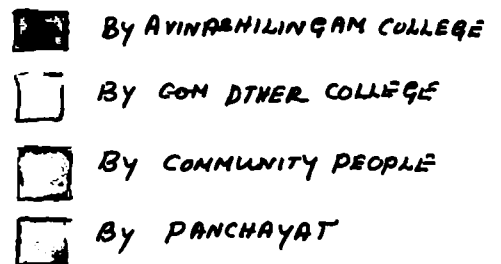 By AVINASHILINGAM COLLEGE
By GOM DTHER COLLEGE
By COMMUNITY PEOPLE
By PANCHAYAT